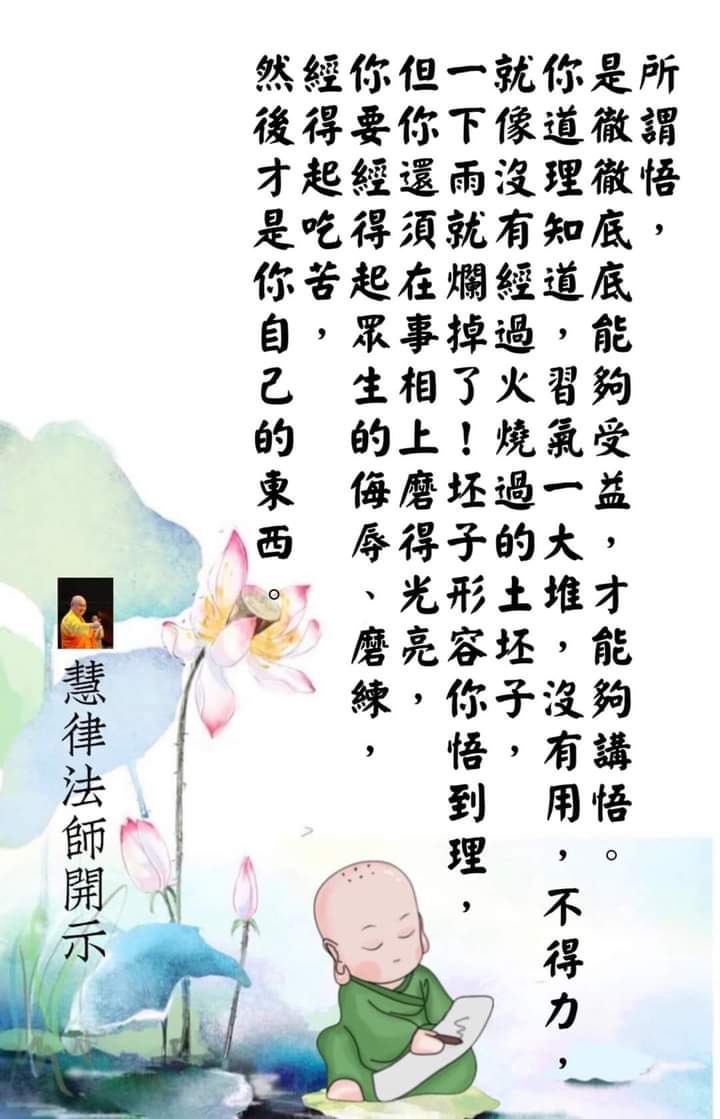 所謂悟，
是徹徹底底能夠受益，才能夠講悟。
你道理知道，習氣一大堆，沒有用，不得力，
就像沒有經過火燒過的土坯子，
一下雨就爛掉了！坯子形容你悟到理，
但你還須在事相上磨得光亮，
你要經得起眾生的侮辱、磨練，
經得起吃苦，
然後才是你自己的東西。
慧律法師開示